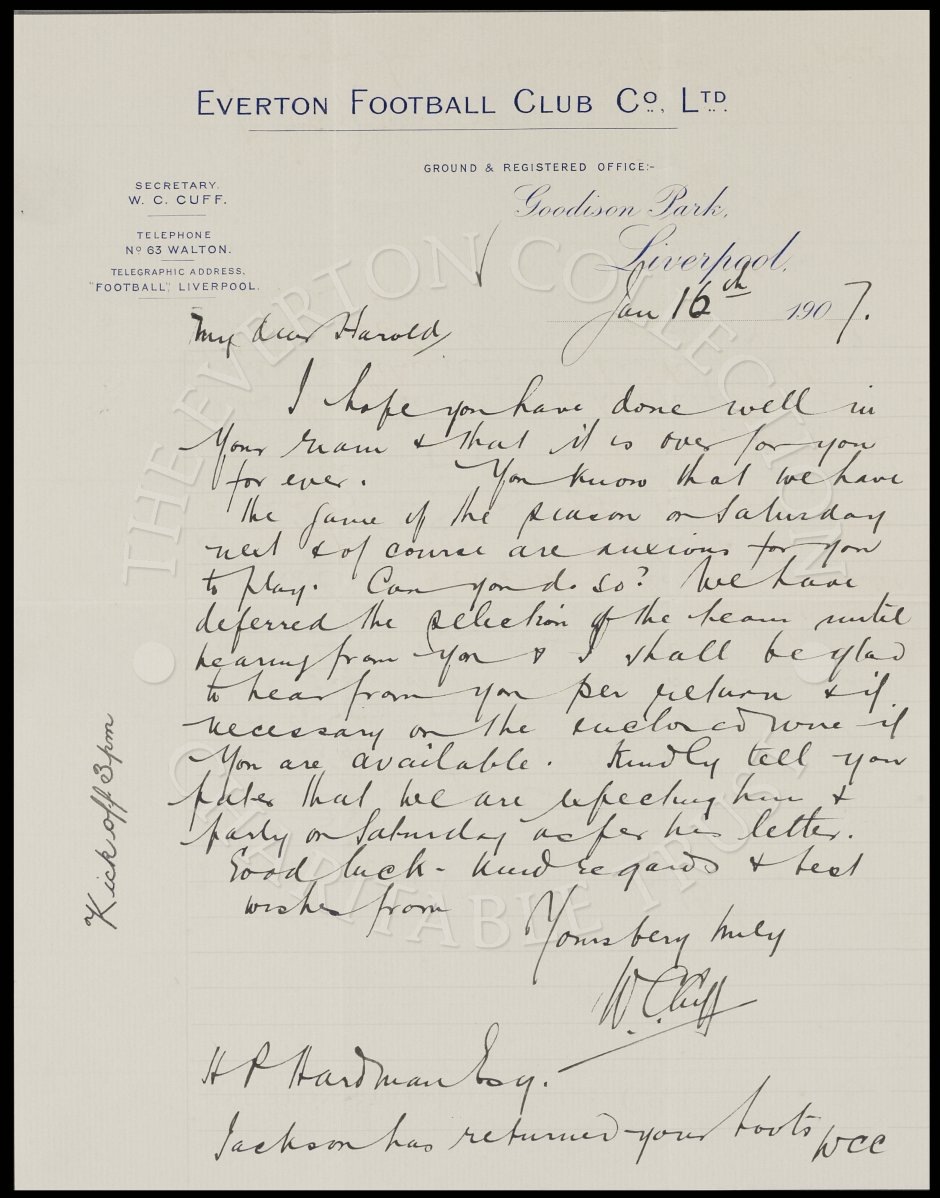 EVERTON FOOTBALL CLUB Co., LTD.
GROUND & REGISTERED OFFICE:-
Goodison Park,
Liverpool,
SECRETARY.
W. C. CUFF.
TELEPHONE
No 63 WALTON.
TELEGRAPHIC ADDRESS.
"FOOTBALL", LIVERPOOL.
Jan 16th 1907.
My dear Harold,
I hope you have done well in
your exam & that it is over for you
for ever. You know that we have
the game of the season on Saturday
next & of course are anxious for you
to play. Can you do so? We have
deferred the selection of the team until
hearing from you & I shall be glad
to hear from you per return & if
necessary on the enclosed wire if
you are available. Kindly tell your
pater that we are expecting him &
party on Saturday as per his letter.
Good luck - kind regards & best
wishes from
Yours very truly
W. C. Cuff
H P Hardman Esq.
Jackson has returned your boots WCC
Kick off 3pm
THE EVERTON COLLECTION
CHARITABLE TRUST